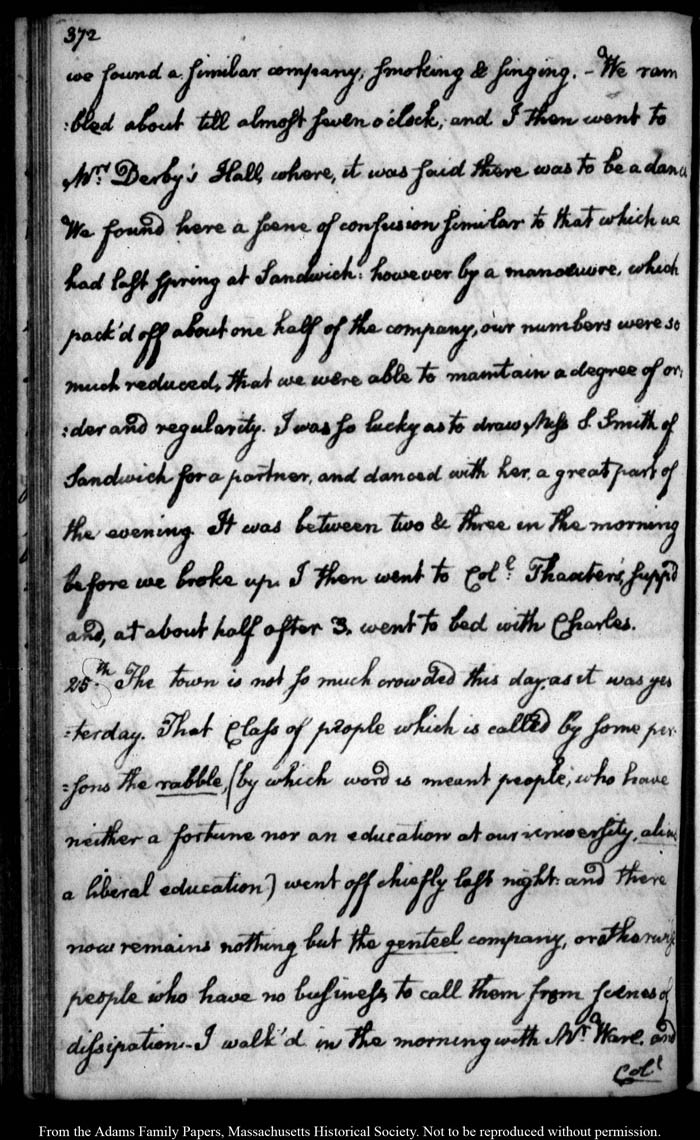 372
we found a similar company, smoking & singing. - We ram
:bled about till almost seven o'clock, and I then went to
Mr: Derby's Hall, where, it was said there was to be a danc
We found here a scene of confusion similar to that which we
had last spring at Sandwich: however by a manoeuvre, which
pack'd off about one half of the company, our numbers were so
much reduced, that we were able to maintain a degree of or:
:der and regularity. I was so lucky as to draw Miss S. Smith of
Sandwich for a partner, and danced with her, a great part of
the evening. It was between two & three in the morning
before we broke up. I then went to Coll: Thaxter's, supp'd
and, at about half after 3, went to bed with Charles.
25th. The town is not so much crowded this day, as it was yes
=terday. That Class of people which is called by some per-
=sons the rabble, (by which word is meant people, who have
neither a fortune nor an education at our university, alias
a liberal education) went off chiefly last night: and there
now remains nothing but the genteel company, or otherwise
people who have no business, to call them from scenes of
dissipation. - I walk'd in the morning with Mr. Ware, and
Coll
From the Adams Family Papers, Massachusetts Historical Society. Not to be reproduced without permission.